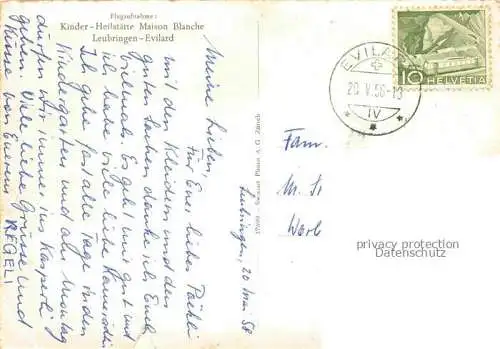 Flugaufnahme:
Kinder-Heilstätte Maison Blanche
Leubringen-Evilard
Leubringen, 20 Mai 58
Meine Lieben,
Für Euer liebes Päckli
mit den Kleidern und den
guten Sachen danke ich Euch
vielmals. Es geht mir gut und
ich habe viele liebe Kamerädli.
Ich gehe fast alle Tage in den
Kindergarten und am Montag
dürfen wir immer ins Kasperli
gehen. Viele liebe Grüsse und
Küsse von Eurem
REGELI
Swissair Photo A. G. Zürich
EVILARD
20.V.58-18
IV
10 HELVETIA
Fam.
M. St
Worb
privacy protection
Datenschutz